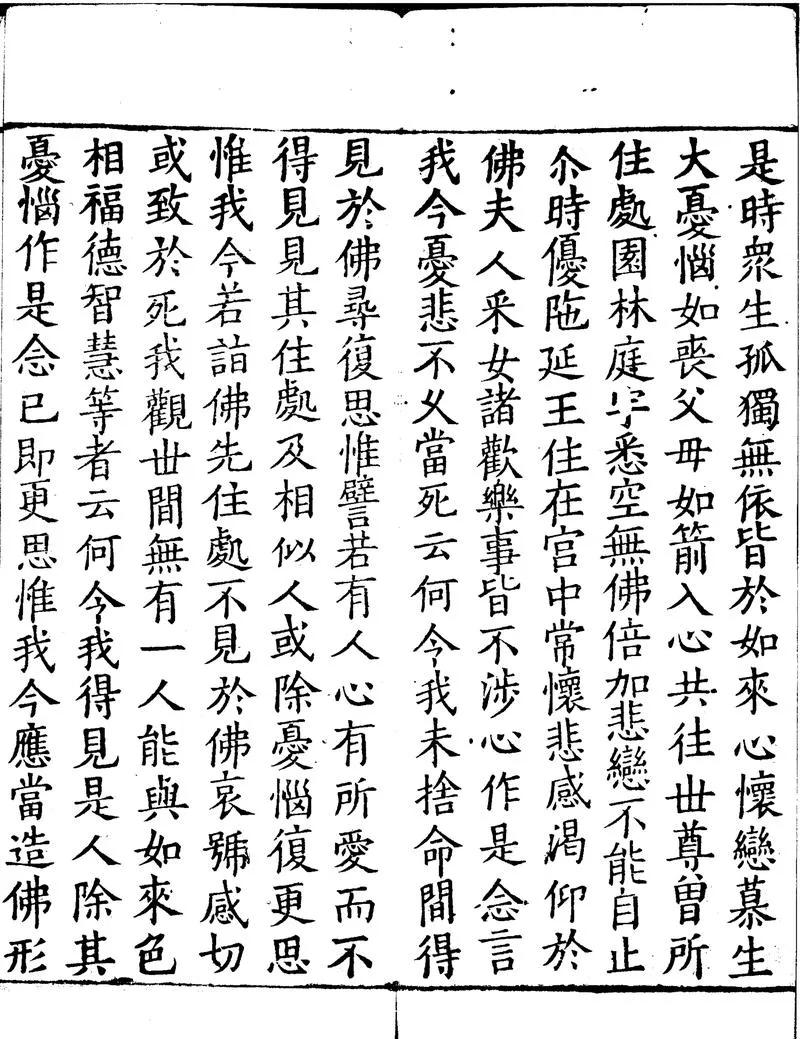 是時衆生孤獨無依皆於如來心懷戀慕生
大憂惱如喪父毋如箭入心共往世尊曽所
住處園林庭宇悉空無佛倍加悲戀不能自止
尒時優陁延王住在宫中常懷悲感渴仰於
佛夫人采女諸歡樂事皆不涉心作是念言
我今憂悲不乆當死云何令我未捨命間得
見於佛尋復思惟譬若有人心有所愛而不
得見見其住處及相似人或除憂惱復更思
惟我今若詣佛先住處不見於佛哀號感切
或致於死我觀世間無有一人能與如來色
相福德智慧等者云何令我得見是人除其
憂惱作是念已即更思惟我今應當造佛形